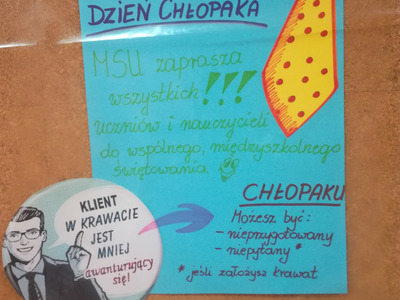 DZIEŃ CHŁOPAKA
MSU zaprasza
wszystkich!!!
uczniów i nauczycieli
do wspólnego, międzyszkolnego
świętowania
CHŁOPAKU
Możesz być:
- nieprzygotowany
- niepytany *
* jeśli założysz krawat
KLIENT
W KRAWACIE
JEST
MNIEJ
awanturujący
się!